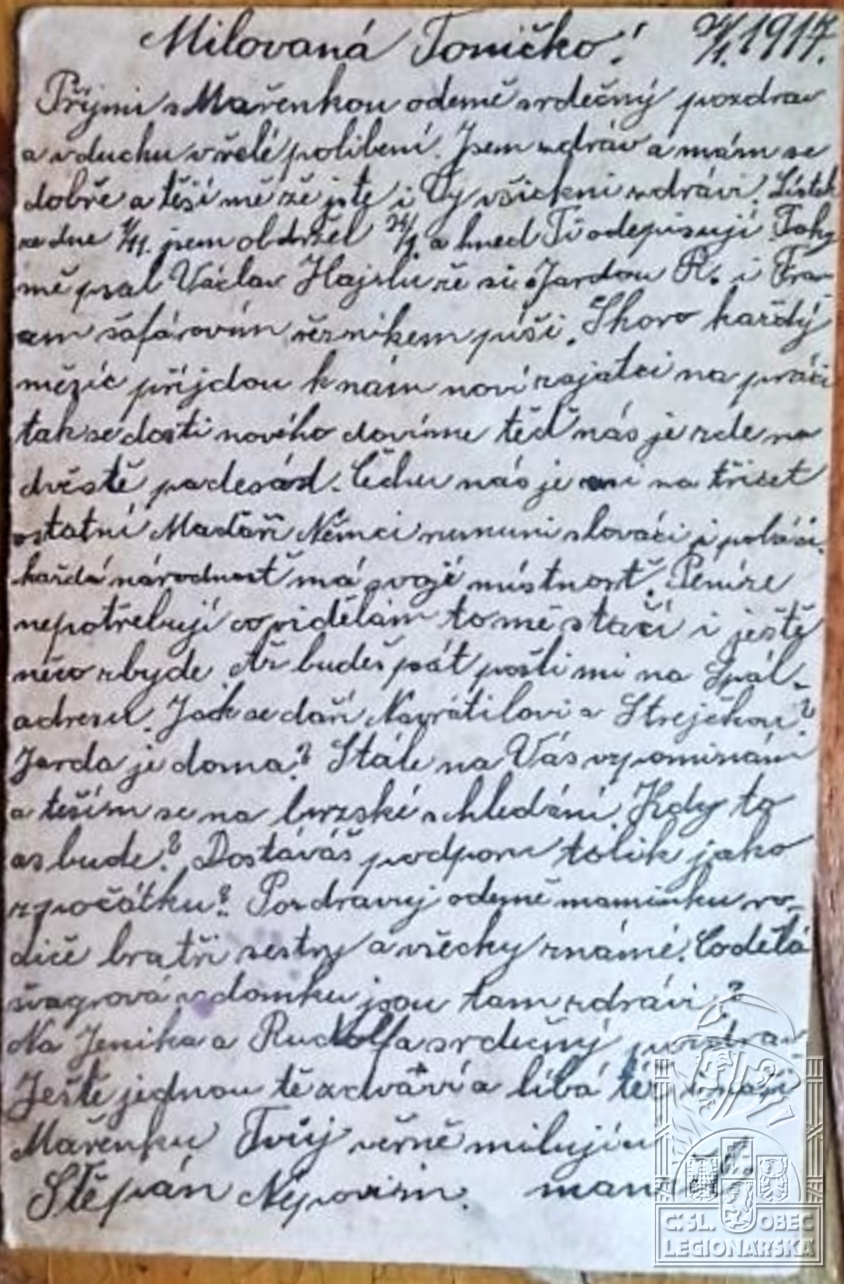 Milovaná Toničko! 1917.
Příjmi s Mařenkou odemě srdečný pozdrav
a v duchu vřelé polibení. Jsem zdráv a mám se
dobře a těší mě že jste i Vy všickni zdrávi. Lístek
ze dne jsem obdržel a hned Ti odepisují Taky
mě psal Václav že si s Jardou R. i Fra-
řezníkem píší. Skoro každý
měsíc příjdou k nám noví zajatci na práci
tak se dosti nového dovíme teď nás je zde na
dvěstě padesád. Čechu nás je asi na třicet
ostatní Maďaři Němci rumuni slováci i poláci.
každá národnosť má svojé místnosť. Peníze
nepotřebují co vidělám to mě stačí i ještě
něco zbyde. Až budeš psát pošli mi na
adresu. Jak se daří Navrátilovi a Strejčkou?
Jarda je doma? Stále na Vás vzpomínám
a těším se na brzské schledání. Kdy to
as bude? Dostáváš podporu tolik jako
zpočátku? Pozdravuj odemě maminku ro-
diče bratři sestry a všecky známé. Co dělá
švagrová v domku jsou tam zdrávi?
Na Jenika a Rudolfa srdečný pozdrav
Ještě jednou tě zdraví a líbá tě i naší
Mařenku Tvůj věrně milující
Štěpán manžel
Č:SL. OBEC
LEGIONÁŘSKÁ